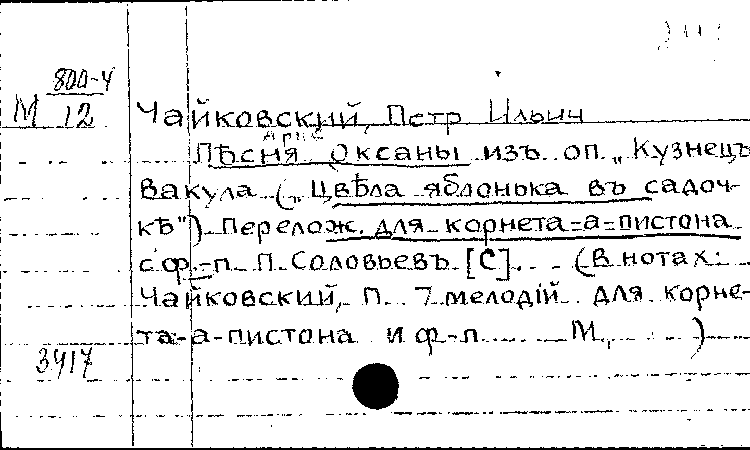 800-4
М 12
Чайковский, Петр Ильич
Арио
Пѣсня Оксаны изъ оп. „Кузнецъ
Вакула („Цвѣла яблонька въ садоч-
кѣ") Перелож. для корнета-а-пистона
с ф.-п. П. Соловьевъ [C]. (В нотах:
Чайковский, П. 7 мелодій для корне-
та-а-пистона и ф-п М., )
3417